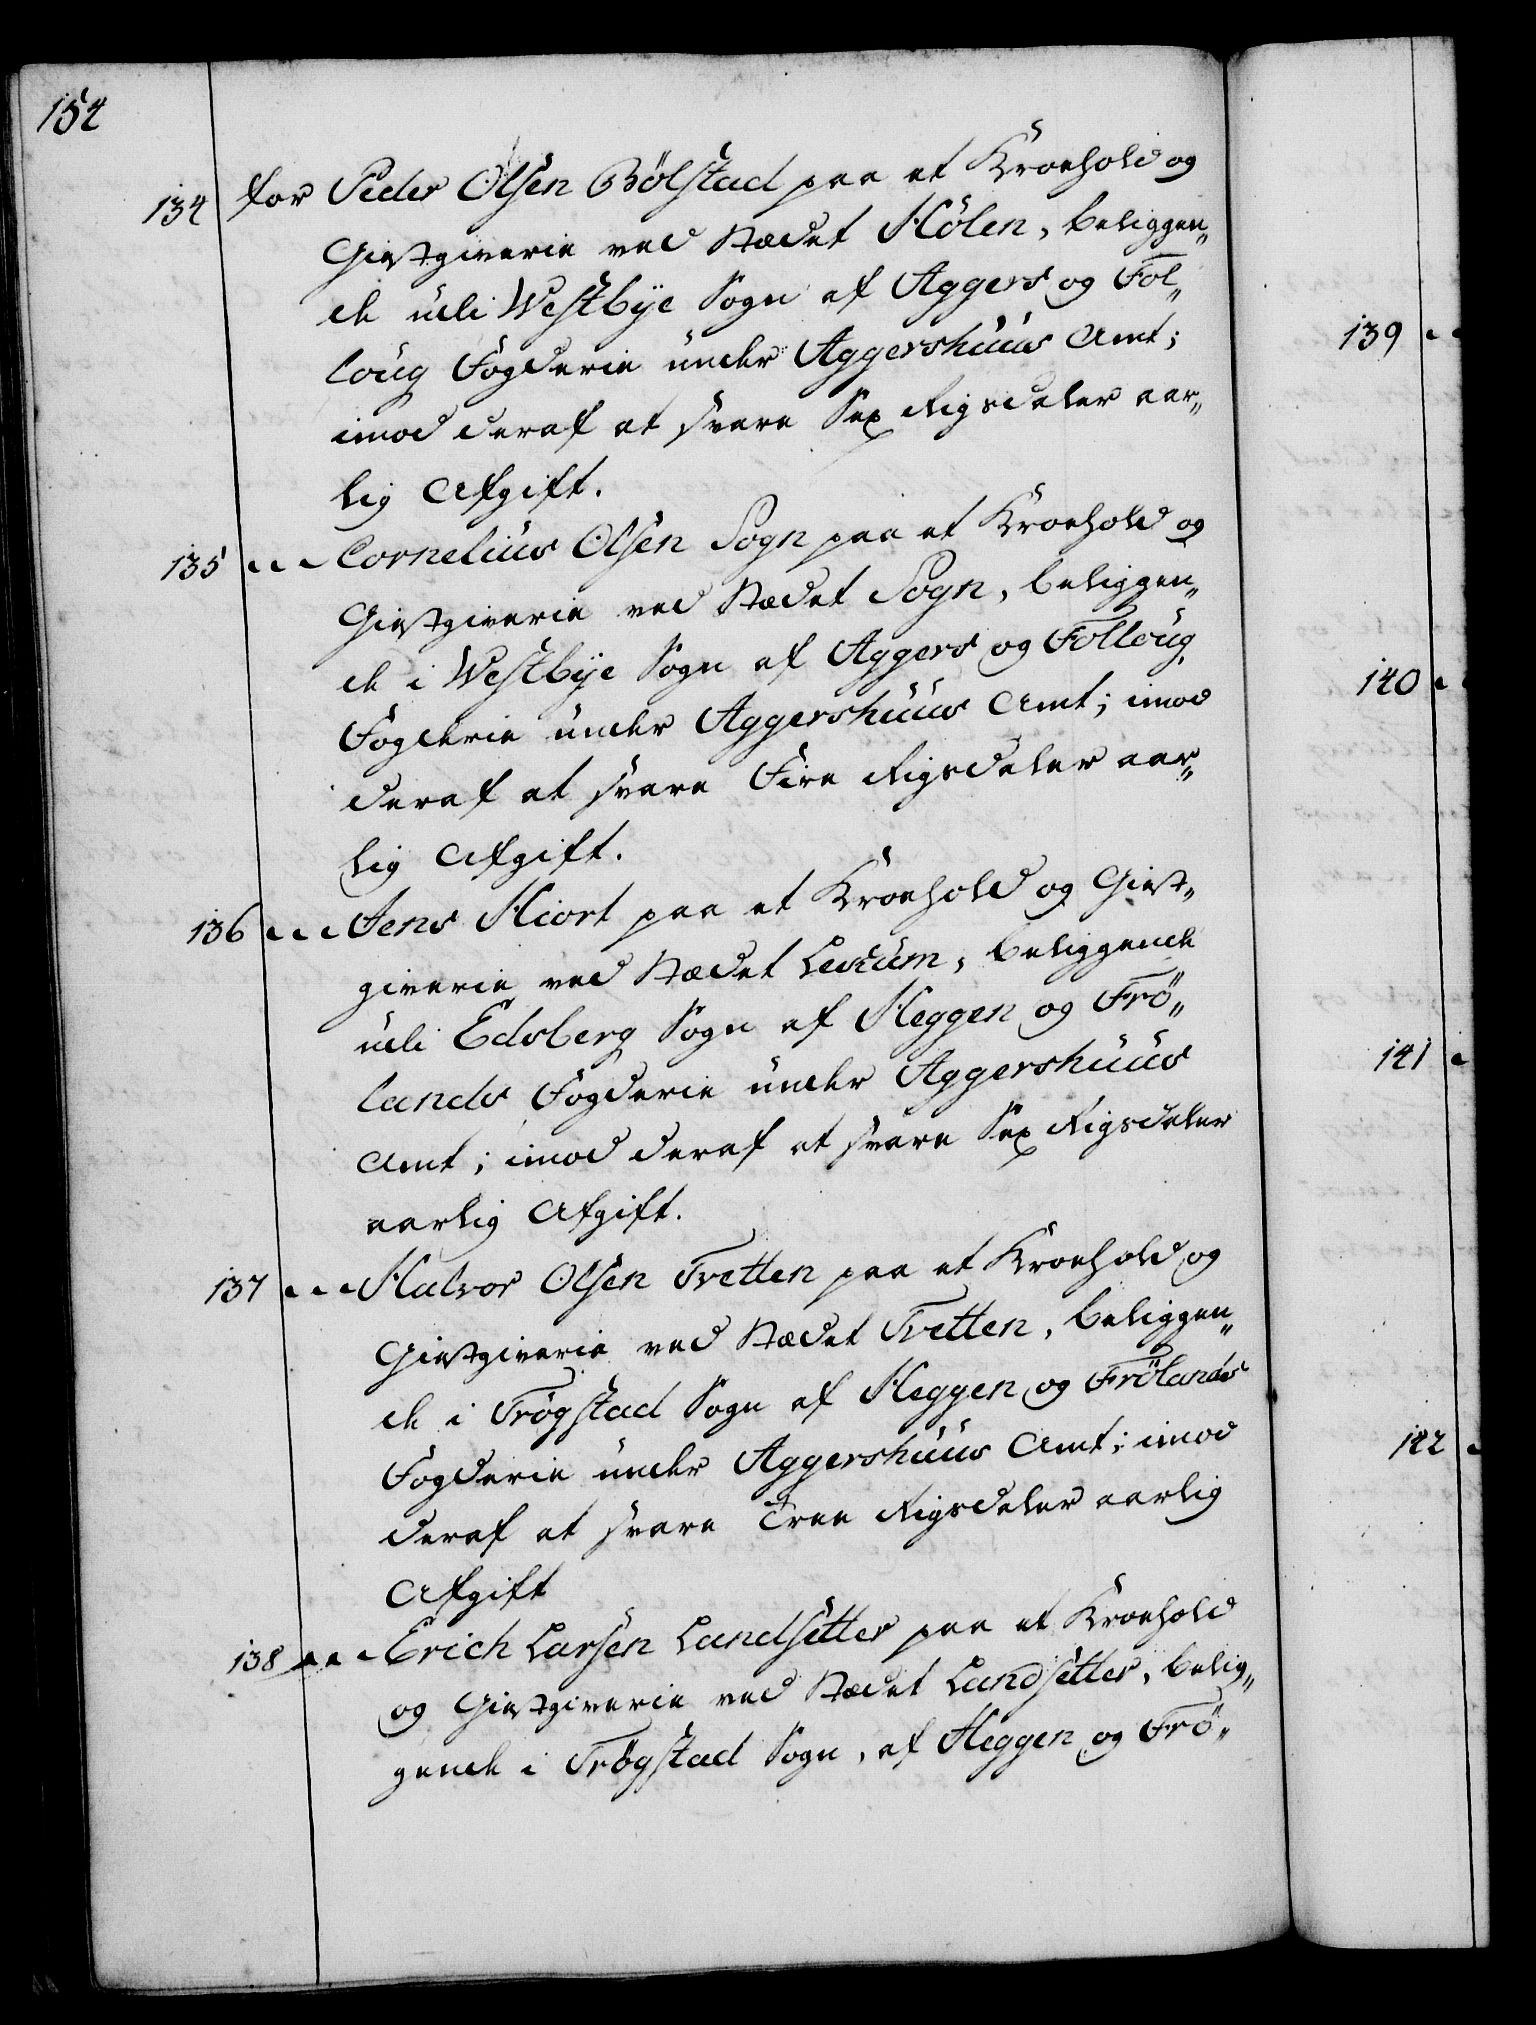 154
134 for Peder Olsen Bölstad paa et Kroehold og
Giestgiverie ved Stædet Hölen, beliggen„
de udi Westbÿe Sogn af Aggers og Fol„
loug Fogderie under Aggershuus Amt;
imod deraf at svare Sex Rigsdaler aar„
lig Afgift.
135 - - - Cornelius Olsen Sogn paa et Kroehold og
Giestgiverie ved Stædet Sogn, beliggen„
de i Westbÿe Sogn af Aggers og Folloug
Fogderie under Aggershuus Amt; imod
deraf at svare Fire Rigsdaler aar„
lig Afgift.
136 - - - Jens Hiort paa et Kroehold og Giest„
giverie ved Stædet Leckum, beliggende
udi Edsberg Sogn af Heggen og Frö„
lands Fogderie under Aggershuus
Amt; imod deraf at svare Sex Rigsdaler
aarlig Afgift.
137 - - - Halvor Olsen Tvetten paa et Kroehold og
Giestgiverie ved Stædet Tvetten, beliggen„
de i Trögstad Sogn af Heggen og Frölands
Fogderie under Aggershuus Amt; imod
deraf at svare Tree Rigsdaler aarlig
Afgift
138 - - - Erich Larsen Landsetter paa et Kroehold
og Giestgiverie ved Stædet Landsetter, belig„
gende i Trögstad Sogn, af Heggen og Frö„
139 - -
140 - -
141 -
142 -